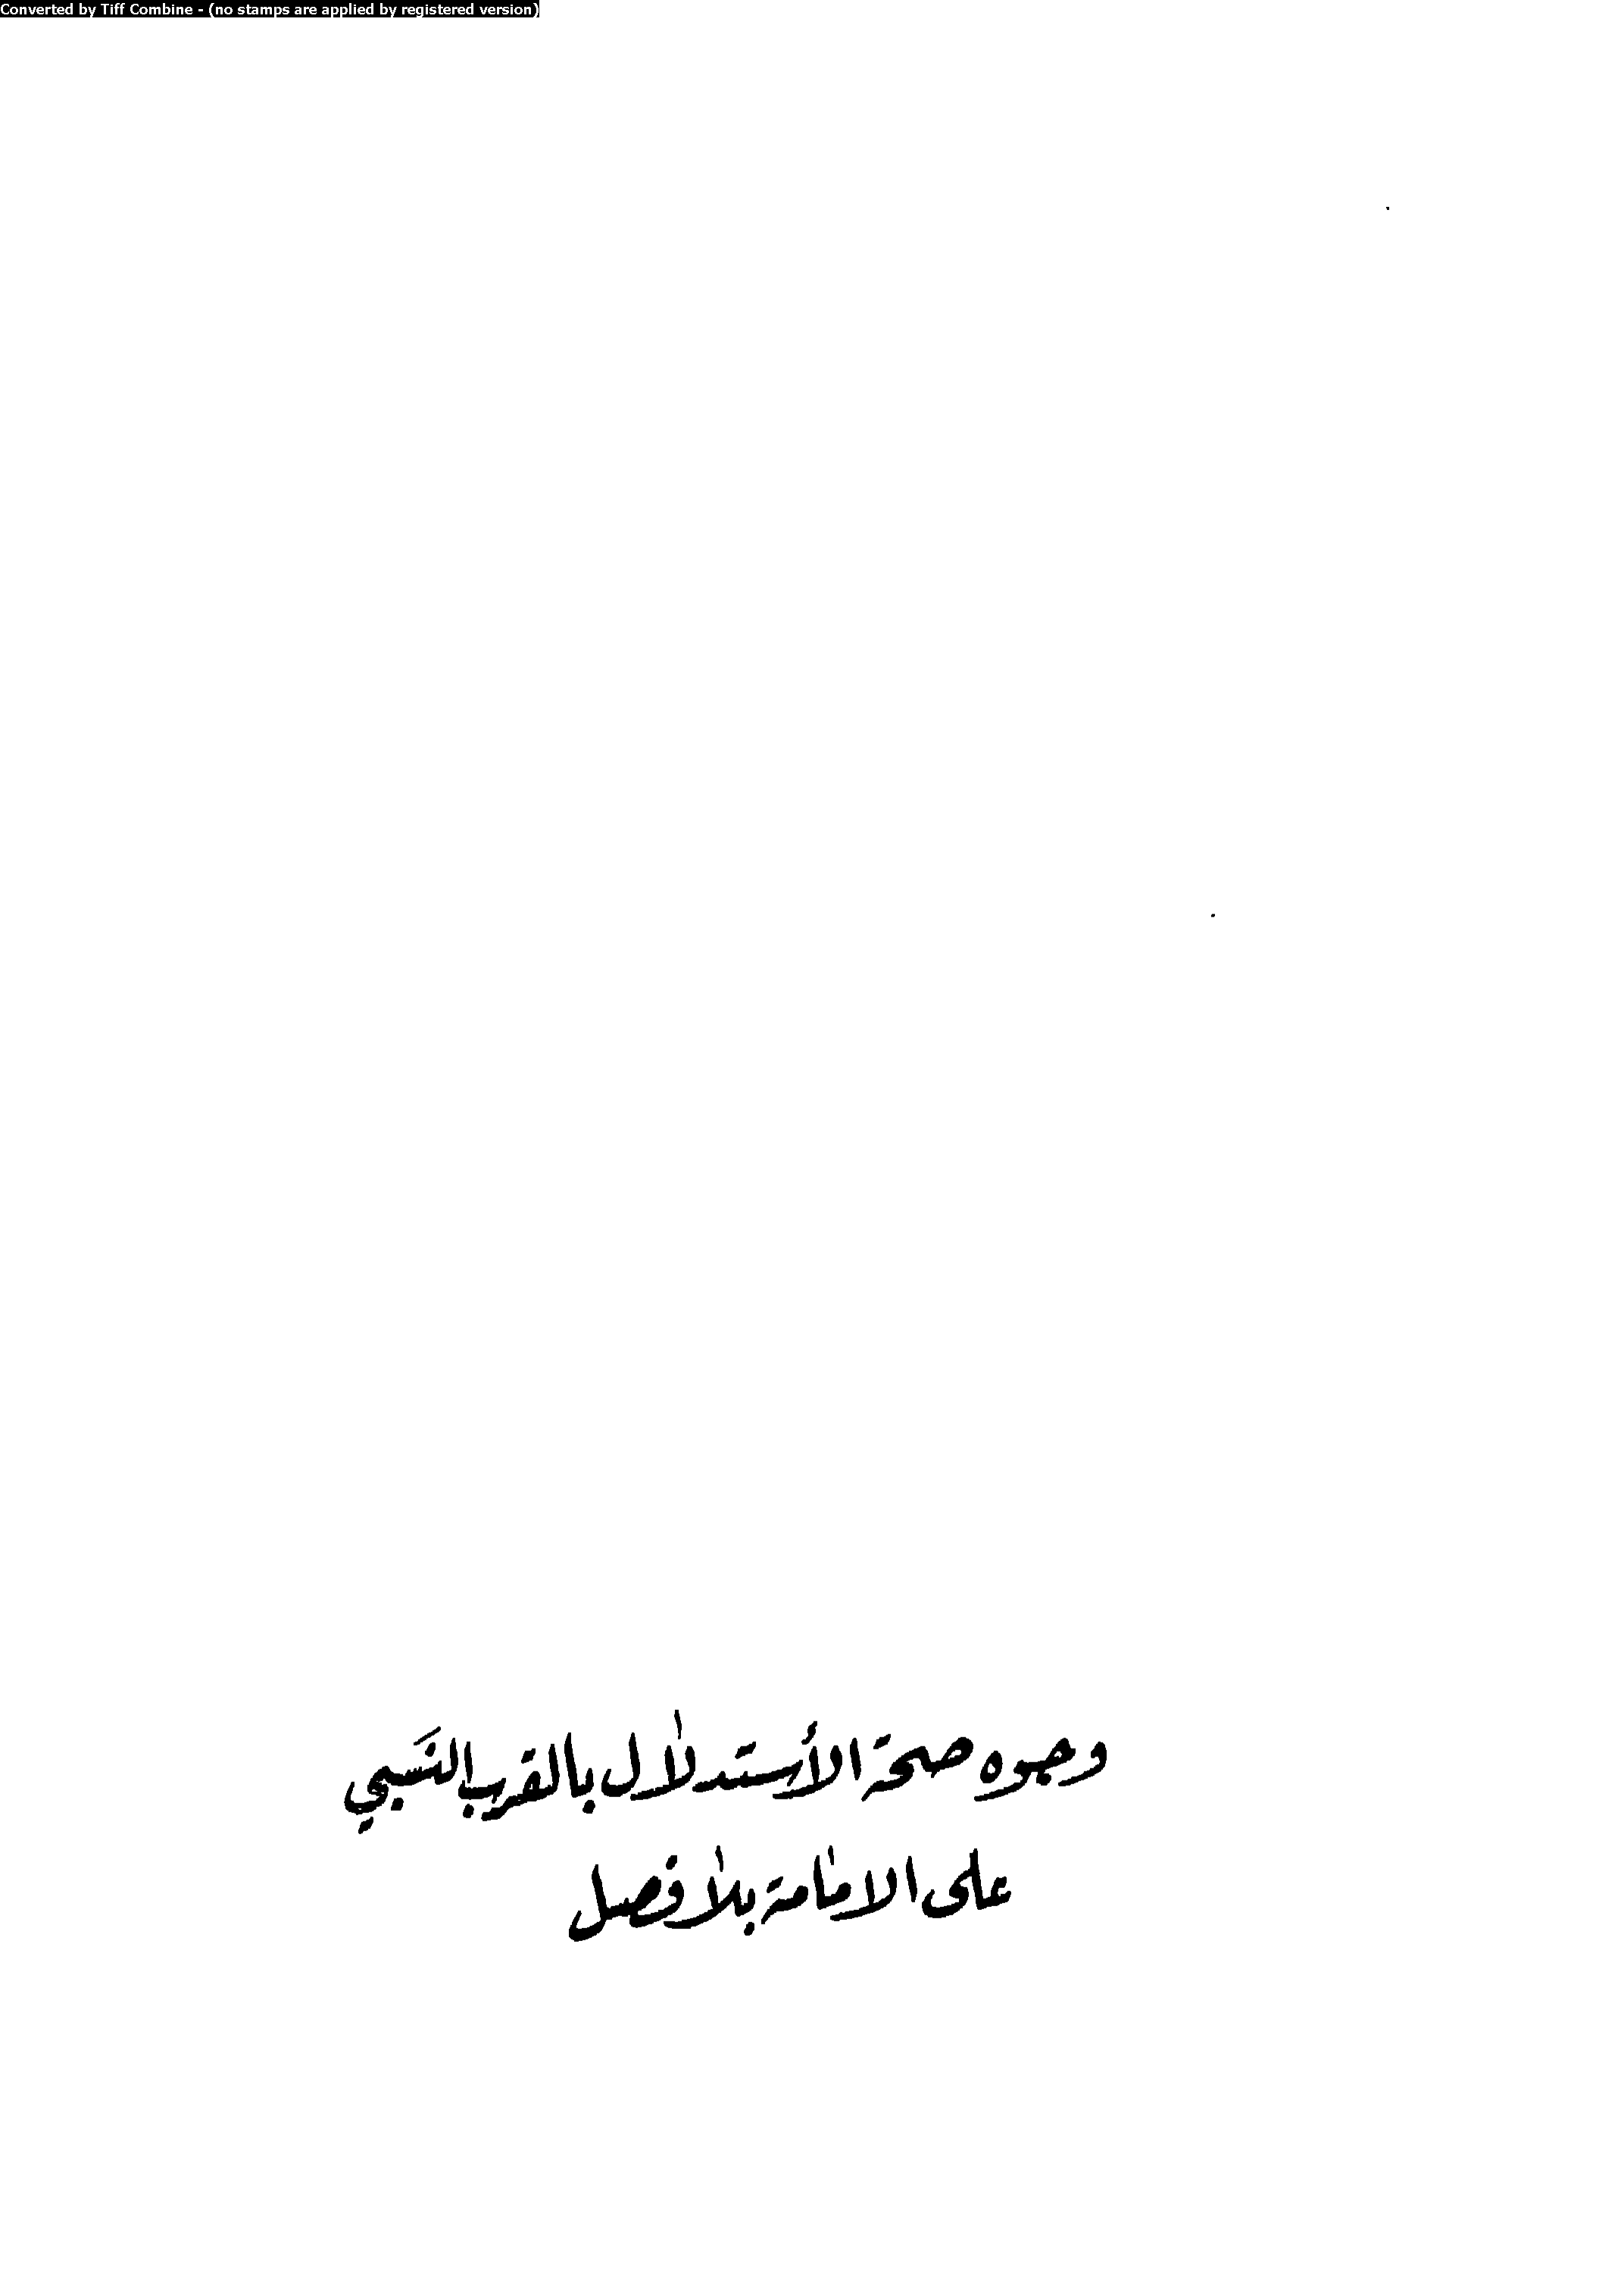 Converted by Tiff Combine - (no stamps are applied by registered version)
وجوه صحة الأستدلال بالقرب النَسبي
على الامامة بلا فصل